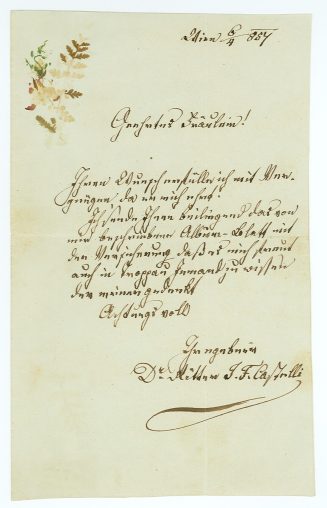 Wien 6/4 857
Geehrtes Fräulein!
Ihren Wunsch erfülle ich mit Ver-
gnügen, da er mich ehrt.
Ich sende Ihnen beiliegend das von
mir beschriebene Album-Blatt mit
der Versicherung daß es mich freut
auch in Troppau Jemand zu wissen
der meiner gedenkt
Achtungsvoll
Ihr ergebener
Dr. Ritter J. F. Castelli